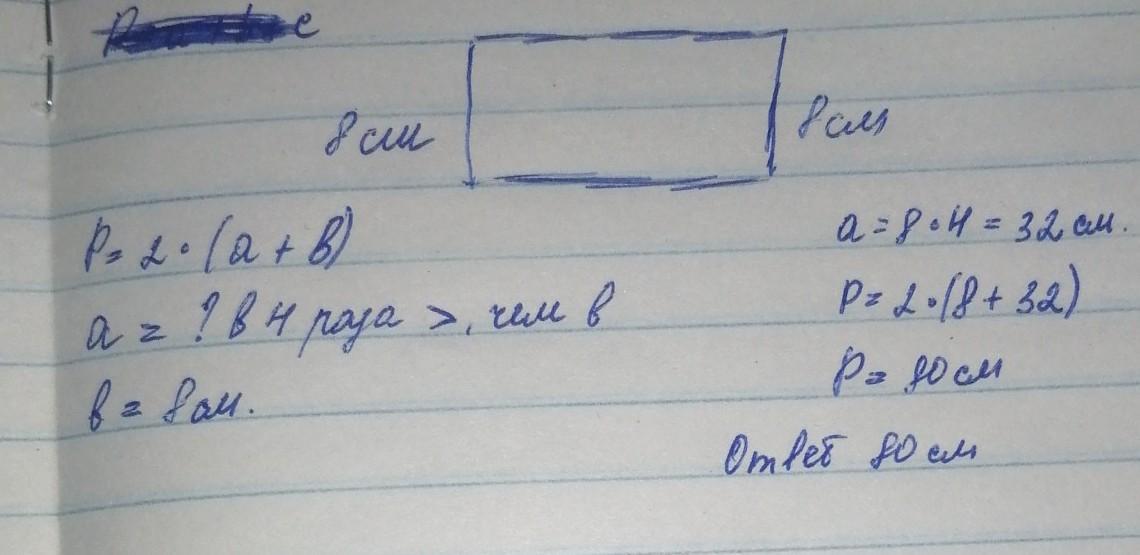 8 см 8 см
P = 2 · (a + в)
a = ? в 4 раза >, чем в
в = 8 см.
a = 8 · 4 = 32 см.
P = 2 · (8 + 32)
P = 80 см
Ответ 80 см